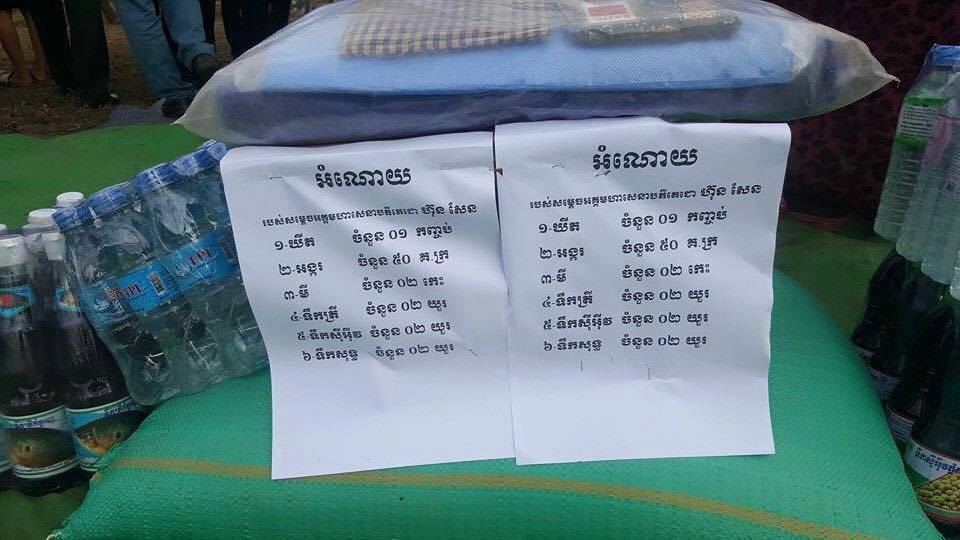 អំណោយ
របស់សម្តេចអគ្គមហាសេនាបតីតេជោ ហ៊ុន សែន
១-ឃីត ចំនួន ០១ កញ្ចប់
២-អង្ករ ចំនួន ៥០ គ.ក្រ
៣-មី ចំនួន ០២ កេះ
៤-ទឹកត្រី ចំនួន ០២ យួរ
៥-ទឹកស៊ីអ៊ីវ ចំនួន ០២ យួរ
៦-ទឹកសុទ្ធ ចំនួន ០២ យួរ
អំណោយ
របស់សម្តេចអគ្គមហាសេនាបតីតេជោ ហ៊ុន សែន
១-ឃីត ចំនួន ០១ កញ្ចប់
២-អង្ករ ចំនួន ៥០ គ.ក្រ
៣-មី ចំនួន ០២ កេះ
៤-ទឹកត្រី ចំនួន ០២ យួរ
៥-ទឹកស៊ីអ៊ីវ ចំនួន ០២ យួរ
៦-ទឹកសុទ្ធ ចំនួន ០២ យួរ